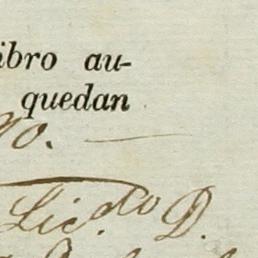 ibro au-
quedan
go.
Lic.do D.